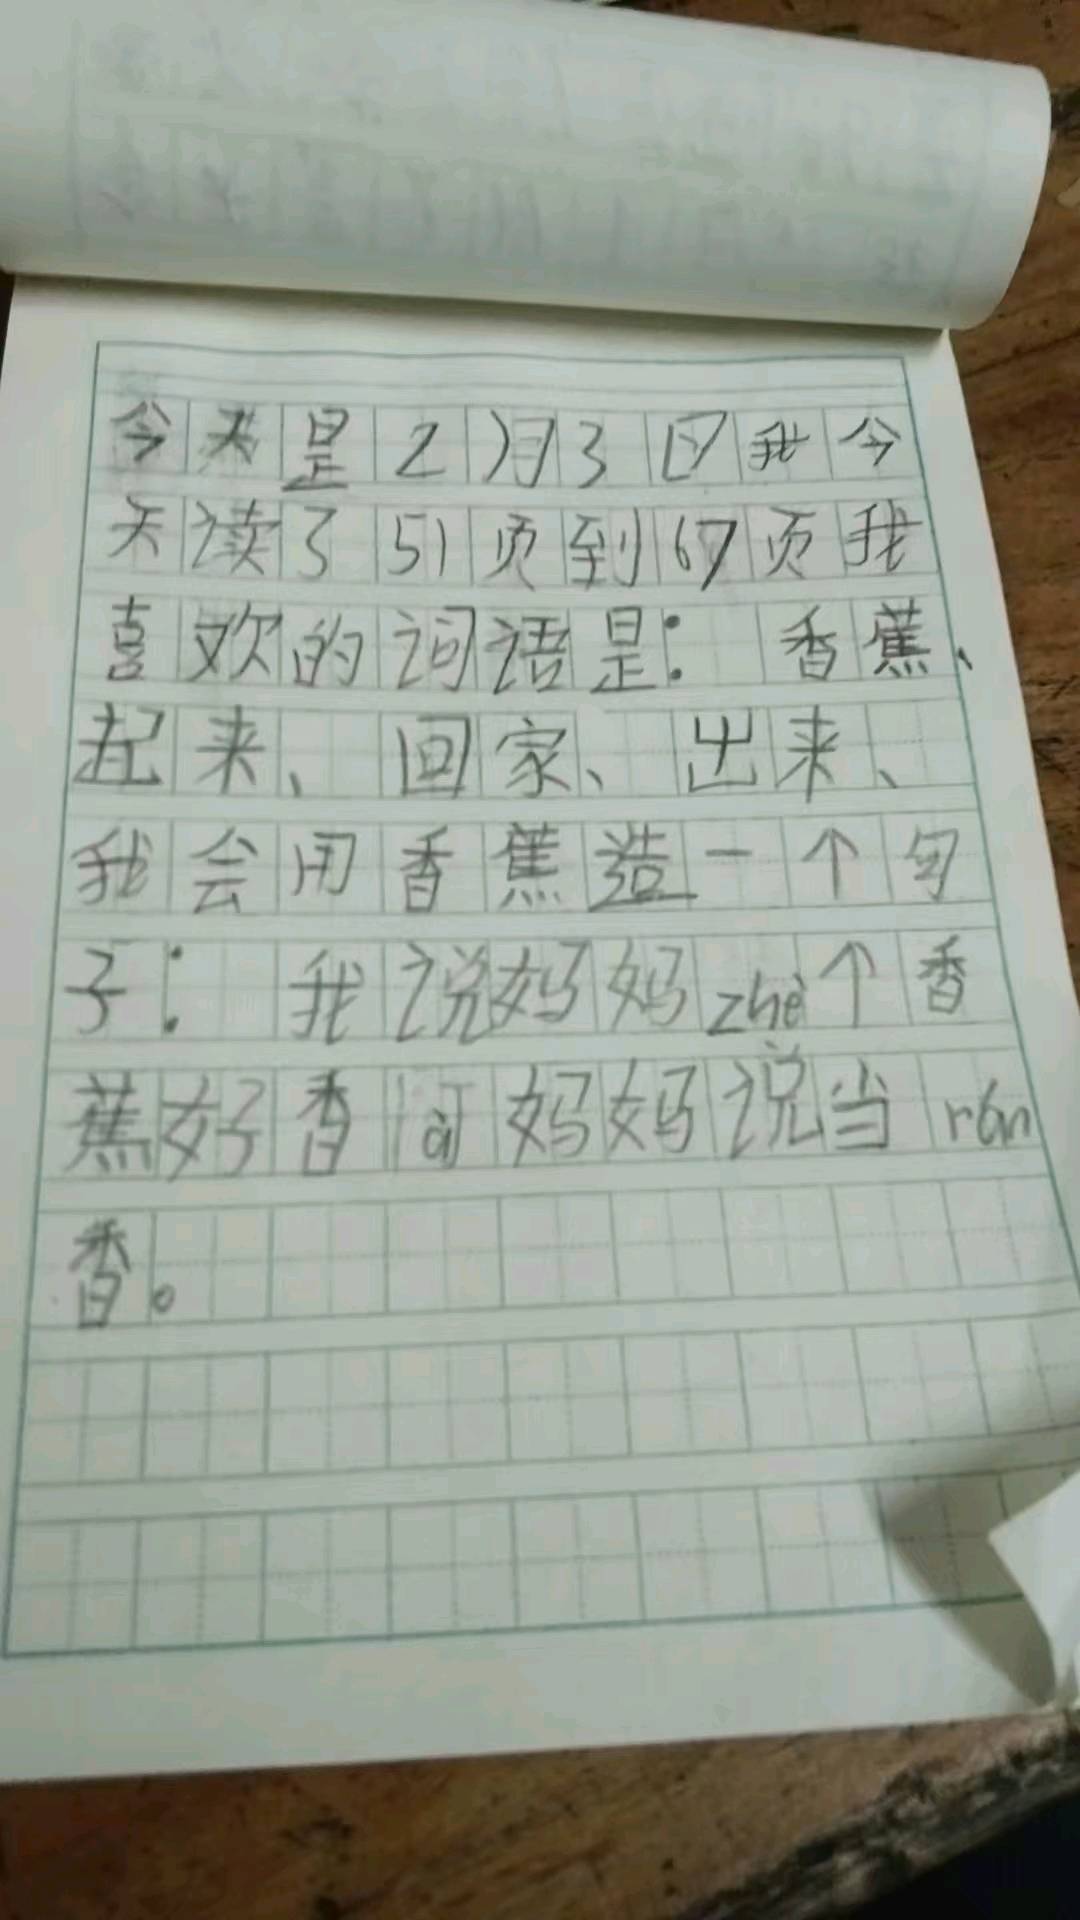 今天是2月3日我今
天读了51页到67页我
喜欢的词语是：香蕉、
起来、回家、出来、
我会用香蕉造一个句
子：我说妈妈zhè个香
蕉好香啊妈妈说当rán
香。